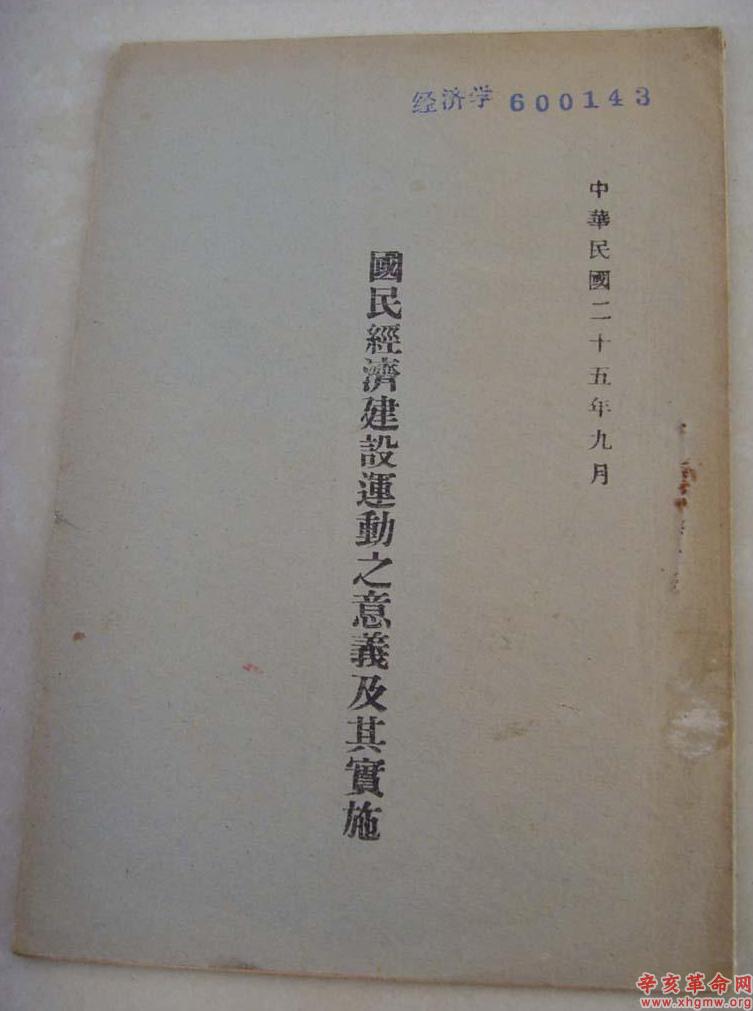 经济学 600143
中華民國二十五年九月
國民經濟建設運動之意義及其實施
辛亥革命网
www.xhgmw.org